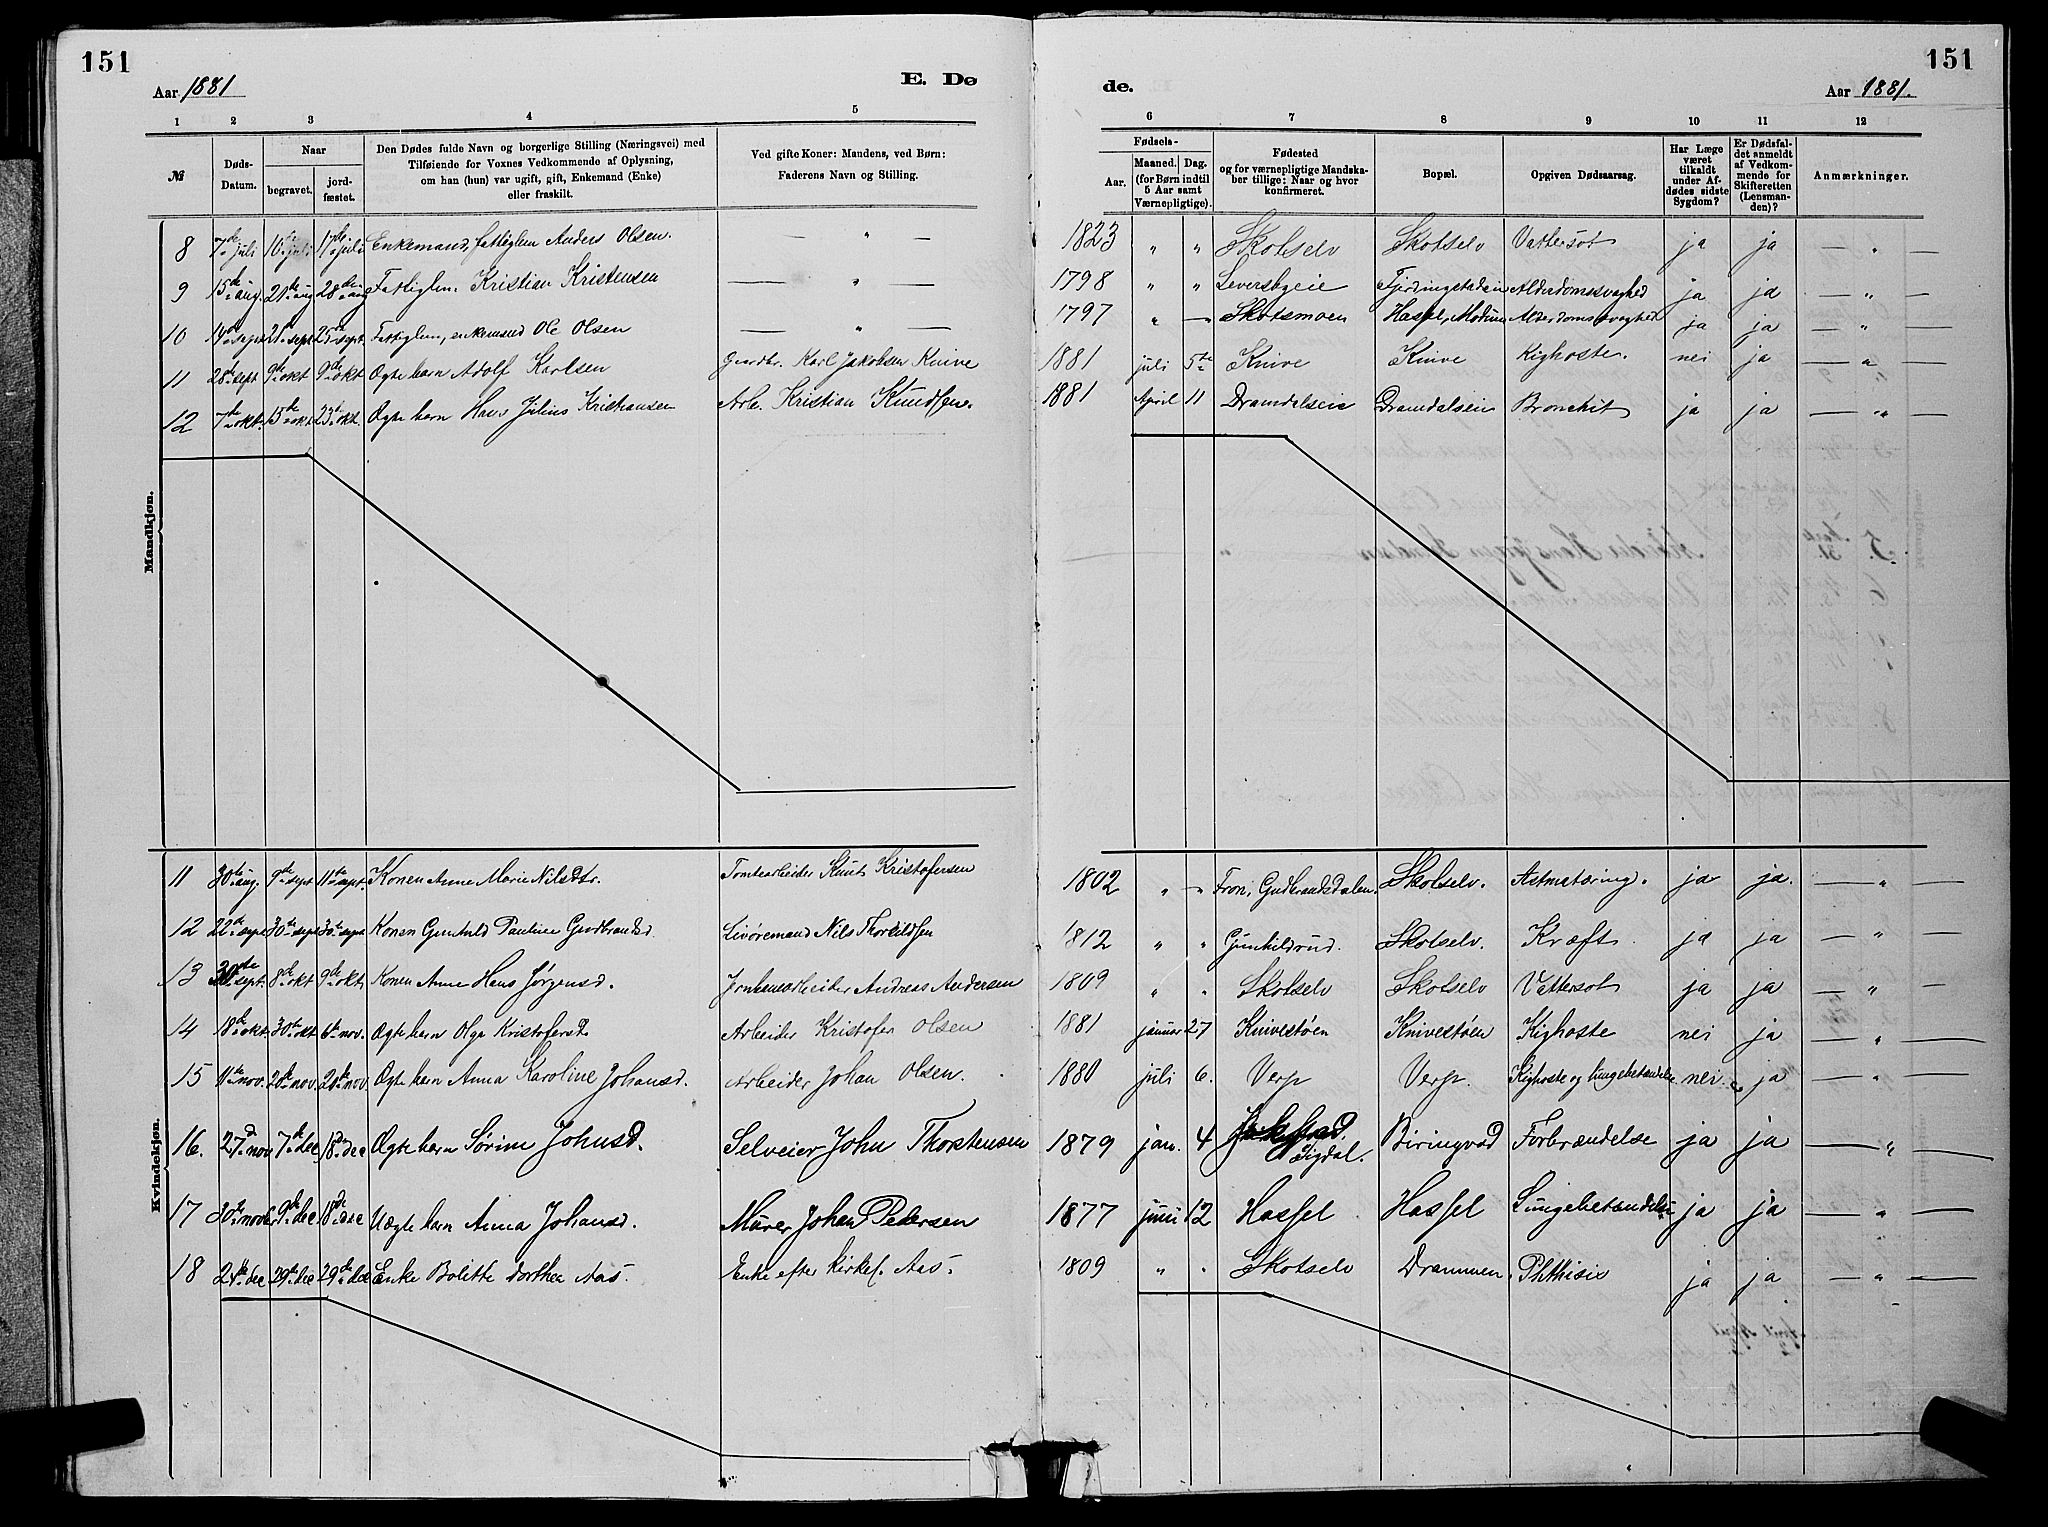 151
151
Aar 1881
E. Dø
de.
Aar 1881.
1 2 3 4 5 6 7 8 9 10 11 12
№
Døds-
Datum.
Naar
begravet.
jord-
fæstet.
Den Dødes fulde Navn og borgerlige Stilling (Næringsvei) med
Tilføiende for Voxnes Vedkommende af Oplysning,
om han (hun) var ugift, gift, Enkemand (Enke)
eller fraskilt.
Ved gifte Koner: Mandens, ved Børn:
Faderens Navn og Stilling.
Fødsels-
Aar.
Maaned. Dag.
(for Børn indtil
5 Aar samt
Værnepligtige).
Fødested
og for værnepligtige Mandska-
ber tillige: Naar og hvor
konfirmeret.
Bopæl.
Opgiven Dødsaarsag.
Har Læge
været
tilkaldt
under Af-
dødes sidste
Sygdom?
Er Dødsfal-
det anmeldt
af Vedkom-
mende for
Skifteretten
(Lensman-
den)?
Anmærkninger.
Mandkjøn.
8 7de juli 10de juli 17de juli Enkemand, fattiglem Anders Olsen. — " — 1823 " " Skotselv Skotselv Vattersot ja ja — " —
9 15de aug. 21de aug 28de aug Fattiglem. Kristian Kristensen — " — 1798 " " Leversbyeie Fjerdingstadeie Alderdomssvaghed ja ja — " —
10 14de sept 21de sept 25de sept. Fattiglem, enkemand Ole Olsen — " — 1797 " — Skotsmoen Hassel, Modum Alderdomssvaghed ja ja — " —
11 28de sept 9de okt 9de okt Ægte barn Adolf Karlsen Gmdbr. Karl Jakobsen Knive 1881 juli 5te Knive Knive Kighoste. nei ja — " —
12 7de okt. 15de okt 23de okt. Ægte barn Hans Julius Kristiansen Arb. Kristian Knudsen. 1881 April 11 Dramdalseie Dramdalseie Bronchit ja ja — " —
Kvindekjøn.
11 30te aug. 9de sept 11te sept. Konen Anne Marie Nilsdtr. Tomtearbeider Knut Kristofersen 1802 " — Fron, Gudbrandsdalen Skotselv. Astmatæring. ja ja. — " —
12 22de sept 30te sept 30te sept Konen Gunhild Pauline Gudbrandsd. Livøremand Nils Thorkildsen 1812 " " Gunhildrud. Skotselv. Kræft. ja ja — " —
13 30te sept. 8de okt 9de okt. Konen Anne Hans Jørgensd. Jernhanearbeider Andreas Andersen 1809 " " Skotselv Skotselv Vattersot ja ja — " —
14 18de okt. 30te okt 6te nov. Ægte barn Olga Kristofersd. Arbeider Kristofer Olsen 1881 januar 27 Knivestøen Knivestøen Kighoste nei ja — " —
15 11te nov. 20de nov. 20de nov Ægte barn Anna Karoline Johansd. Arbeider Johan Olsen. 1880 juli 6. Verp Verp. Kighoste og lungebetændelse nei. ja — " —
16. 27d nov 7de dec 18de dec Ægte barn Sørine Johnsd. Selveier John Thorstensen 1879 jan. 4 Sigdal. Biringvad Forbrændelse ja ja — " —
17 30te nov 9de dec 18de dec Uægte barn Anna Johansd. Murer Johan Pedersen 1877 juni 12 Hassel Hassel Lungebetændelse ja ja — " —
18 24de dec 29de dec 29de dec Enke Bolette Dorthea Aas. Enke efter kirkes. Aas. 1809 " " Skotselv Drammen. Phthisis ja ja — " —